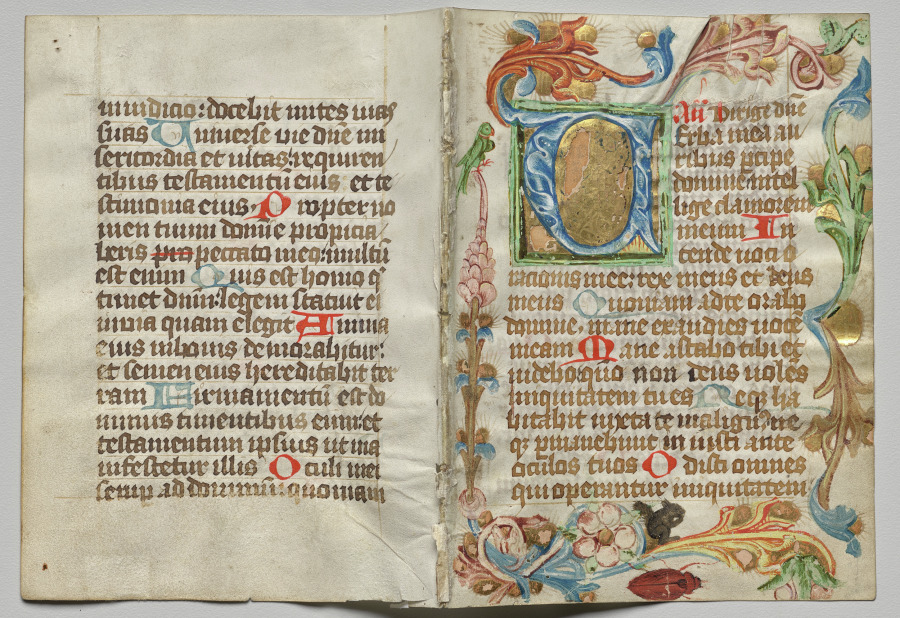 in iudicio: docebit mites vias
suas Universe vie dñe mi
sericordia et ůitas: requiren
tibus testamentū eius et te
stimonia eius. Propter no
men tuum domie propicia
beris pro peccato meo: multū
est enim Quis est homo q̄
timet dnm: legem statuit ei
in via quam elegit Anima
eius in bonis demorabitur:
et semen eius hereditabit ter
ram Firmamentū est do
minus timentibus eum: et
testamentum ipsius ut ma
nifestetur illis Oculi mei
semp ad dominū: quoniam
Añ Dirige dñe
Verba mea au
ribus p̄cipe
domine: intel
lige clamorem
meum In
tende voci o
rationis mee: rex meus et deus
meus Quoniam ad te orabo
domine, mane exaudies voce
meam Mane astabo tibi et
videbo: quō non deus voles
iniquitatem tu es Neq̄ ha
bitabit iuxta te malign9: ne
q̄ pmanebunt in iusti ante
oculos tuos Odisti omnes
qui operantur iniquitatem